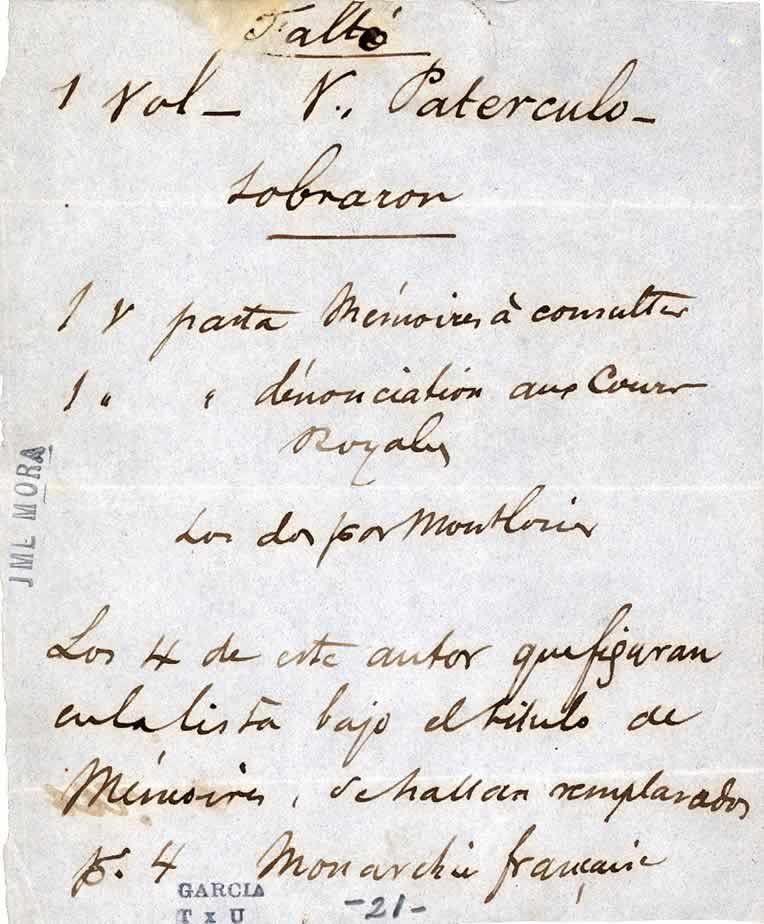 Faltó
1 Vol – V., Paterculo –
Sobraron
1 V pasta Mémoires à consulter
1 " " dénonciation aux Cours
Royales
Los dos por Montlosier
Los 4 de este autor que figuran
en la lista bajo el titulo de
Mémoires, se hallan remplazados
p. 4 Monarchie française
JML MORA
GARCIA
T x U
-21-